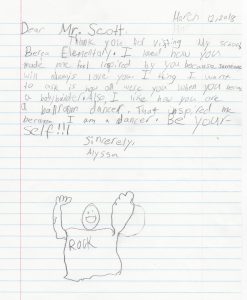 March 12, 2018
Dear Mr. Scott.
Thank you for visiting My school
Berea Elementary. I loved how you
made me feel inspired by you because someone
will always love you. 1 thing I want
to ask is how old were you when you
a bodybuilder. Also, I like how you are
a ballroom dancer. That inspired me
because I am a dancer. Be your-
self!!!
Sincerely,
Alyssa
ROCK